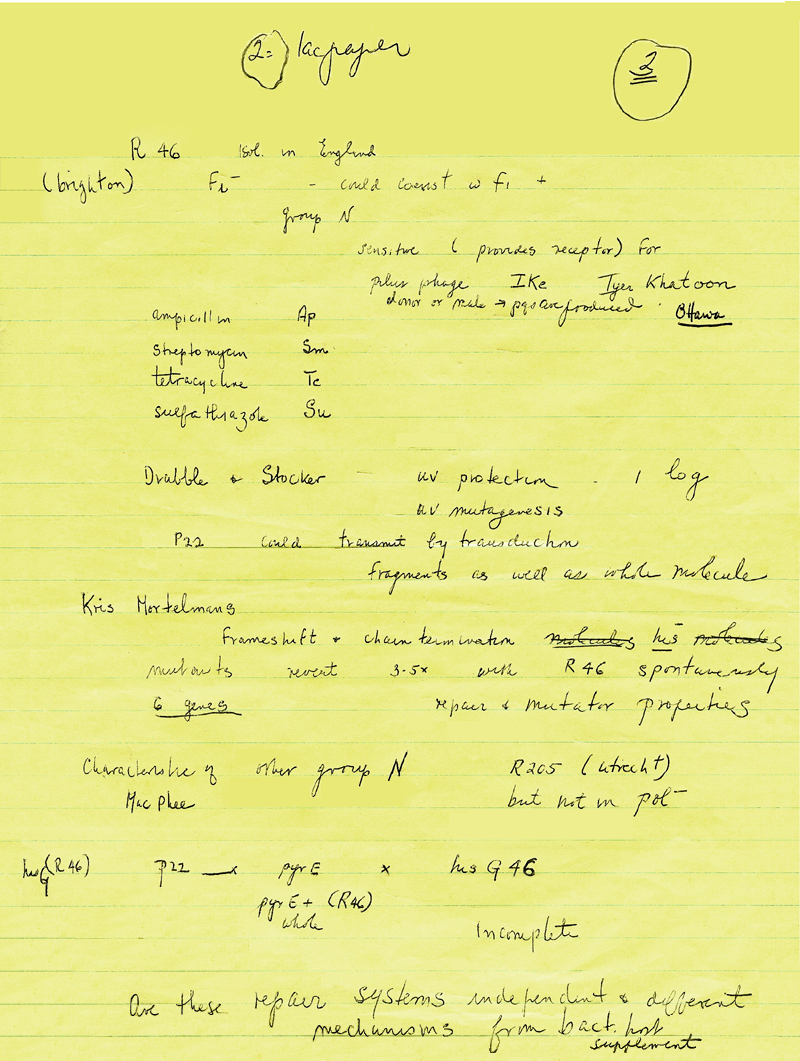 2= lacpaper
3
R 46 Isol. in England
(brighton) Fi- - could coexist w fi +
group N
sensitive ( provides receptor) For
pilus phage IKe Iyer Khatoon
donor or male → are produced. Ottawa
ampicillin Ap
streptomycin Sm
tetracycline Tc
sulfathiazole Su
Drabble & Stocker uv protection - 1 log
uv mutagenesis
P22 could transmit by transduction
fragments as well as whole molecule
Kris Mortelmans
Frameshift & chain termination molecules his- molecules
mutants revert 3-5x with R46 spontaneously
6 genes repair & mutator properties
Characteristic of other group N R205 (Utrecht)
MacPhee but not in pol-
hisG (R46) P22 —x pyrE x his G 46
pyrE+ (R46)
whole
Incomplete
Are these repair systems independent & different
mechanisms from bact. host
supplement